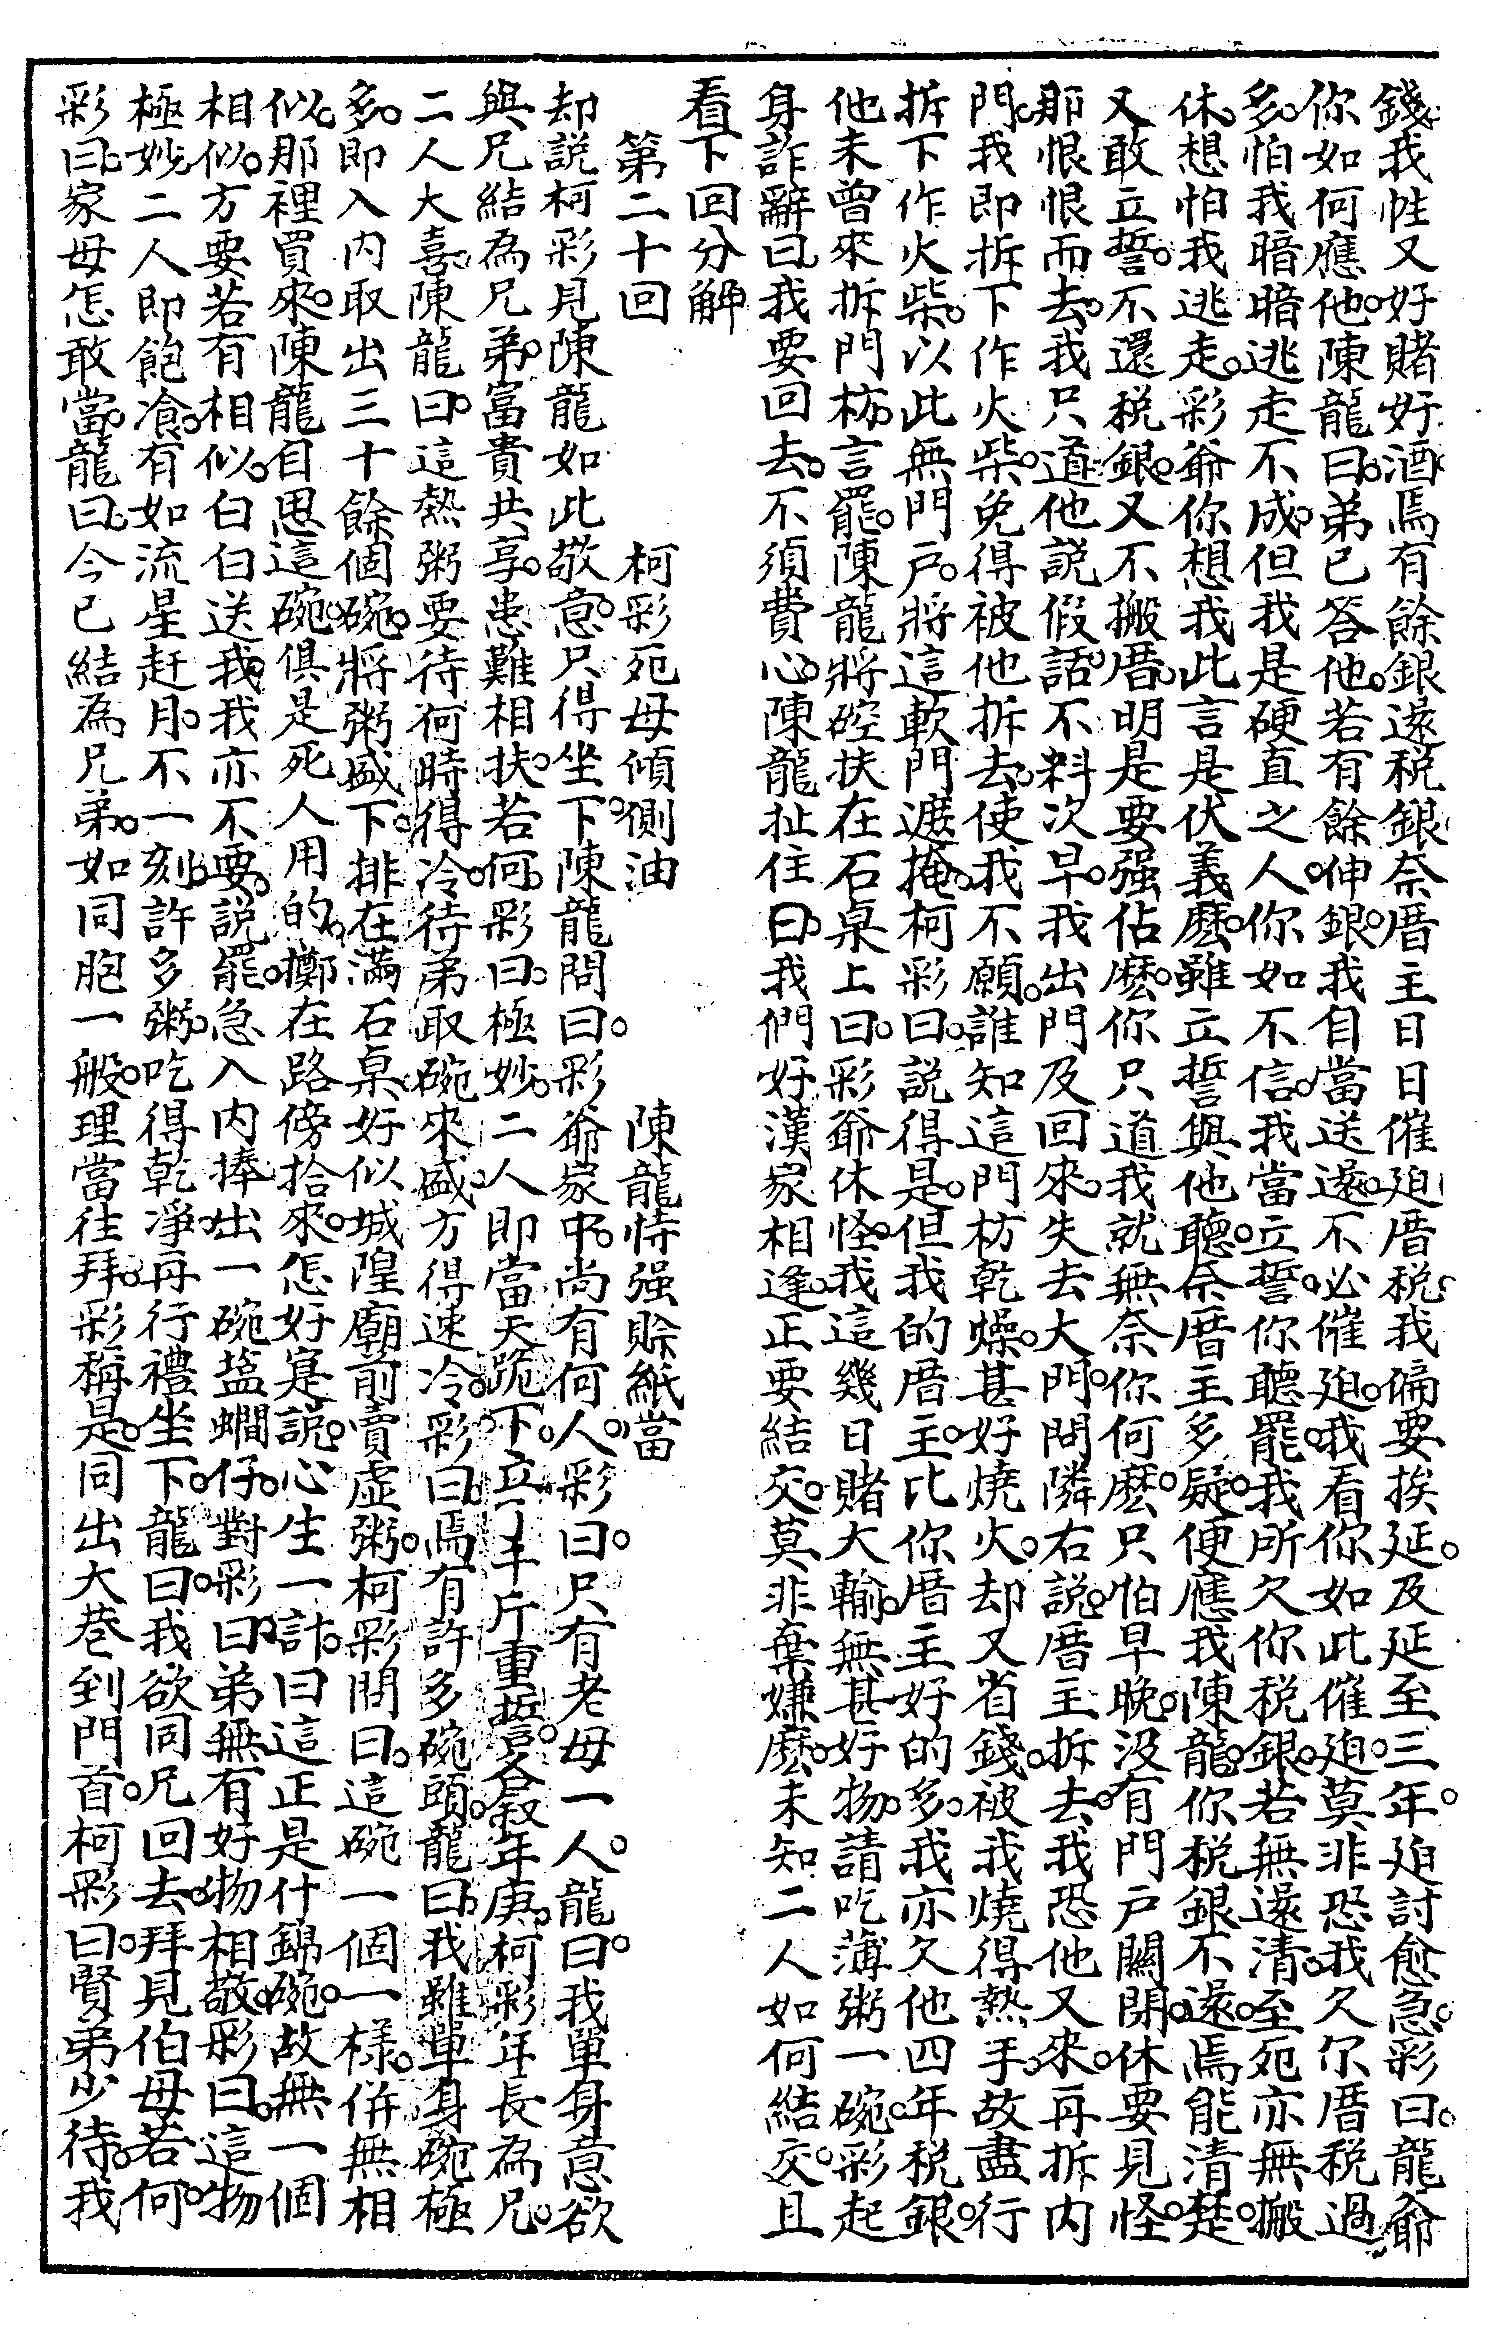 錢。我性又好賭好酒。焉有餘銀還稅銀。奈厝主日日催廹厝稅。我偏要挨延。及延至三年。廹討愈急。彩曰。龍爺
你如何應他。陳龍曰。弟已答他。若有餘伸銀。我自當送還。不必催廹。我看你如此催廹。莫非恐我欠尔厝稅過
多。怕我暗暗逃走不成。但我是硬直之人。你如不信。我當立誓。你聽罷。我所欠你稅銀。若無還清。至死亦無搬
休。想怕我逃走。彩爺你想我此言是伏義麽。雖立誓與他聽。奈厝主多疑。便應我陳龍。你稅銀不還。焉能清楚。
又敢立誓。不還稅銀。又不搬厝。明是要强佔麽。你只道我就無奈你何麽。只怕早晚沒有門戶關閉。休要見怪。
那恨恨而去。我只道他說假話。不料次早。我出門及回來。失去大門。問隣右說。厝主拆去。我恐他又來。再拆內
門。我即拆下作火柴。免得被他拆去。使我不願。誰知這門枋乾燥。甚好燒火。却又省錢。被我燒得熟手。故盡行
拆下作火柴。以此無門戶。將這軟門遮掩。柯彩曰。說得是。但我的厝主。比你厝主好的多。我亦欠他四年稅銀。
他未曾來拆門枋。言罷。陳龍將碎扶在石桌上曰。彩爺休怪。我這幾日賭大輸。無甚好物。請吃薄粥一碗。彩起
身詐辭曰。我要回去。不須費心。陳龍扯住曰。我們好漢家相逢。正要結交。莫非棄嫌麽。未知二人如何結交。且
看下回分解
第二十回　柯彩死母傾側油　陳龍恃强賒紙當
却說柯彩見陳龍如此敬意。只得坐下。陳龍問曰。彩爺家中。尚有何人。彩曰。只有老母一人。龍曰。我單身意欲
與兄結為兄弟。富貴共享。患難相扶。若何。彩曰。極妙。二人即當天跪下。立千斤重誓。各叙年庚。柯彩年長為兄。
二人大喜。陳龍曰。這熱粥要待何時得冷。待弟取碗來盛。方得速冷。彩曰。焉有許多碗頭。龍曰。我雖單身。碗極
多。即入內取出三十餘個碗。將粥盛下。排在滿石桌。好似城隍廟前賣虛粥。柯彩問曰。這碗一個一樣。併無相
似。那裡買來。陳龍自思這碗。俱是死人用的。擲在路傍拾來。怎好寔說。心生一計。曰這正是什錦碗。故無一個
相似。方要若有相似。白白送我。我亦不要。說罷。急入內捧出一碗塩蠘仔。對彩曰。弟無有好物相敬。彩曰。這物
極妙。二人即飽飡。有如流星赶月。不一刻。許多粥。吃得乾淨。再行禮坐下。龍曰。我欲同兄回去。拜見伯母若何。
彩曰。家母怎敢當。龍曰。今已結為兄弟。如同胞一般。理當往拜。彩稱是。同出大巷到門首。柯彩曰。賢弟少待。我